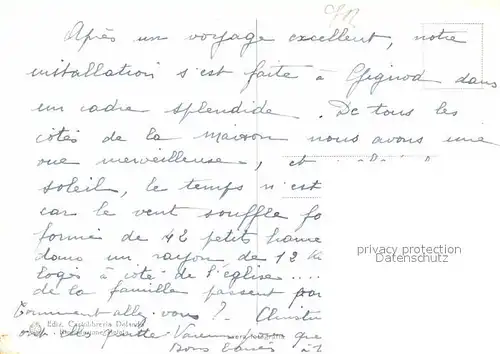 Après un voyage excellent, notre
installation s'est faite à Gignod dans
un cadre splendide. De tous les
côtés de la maison nous avons une
vue merveilleuse, et
soleil, le temps n'est
car le vent souffle fo
formé de 42 petits hame
dans un rayon de 12 K
logés à côté de l'église....
de la famille passent par
Comment allez-vous? Christi
est elle quitte que
Bons
privacy protection
Datenschutz
Ediz. Cartolibreria